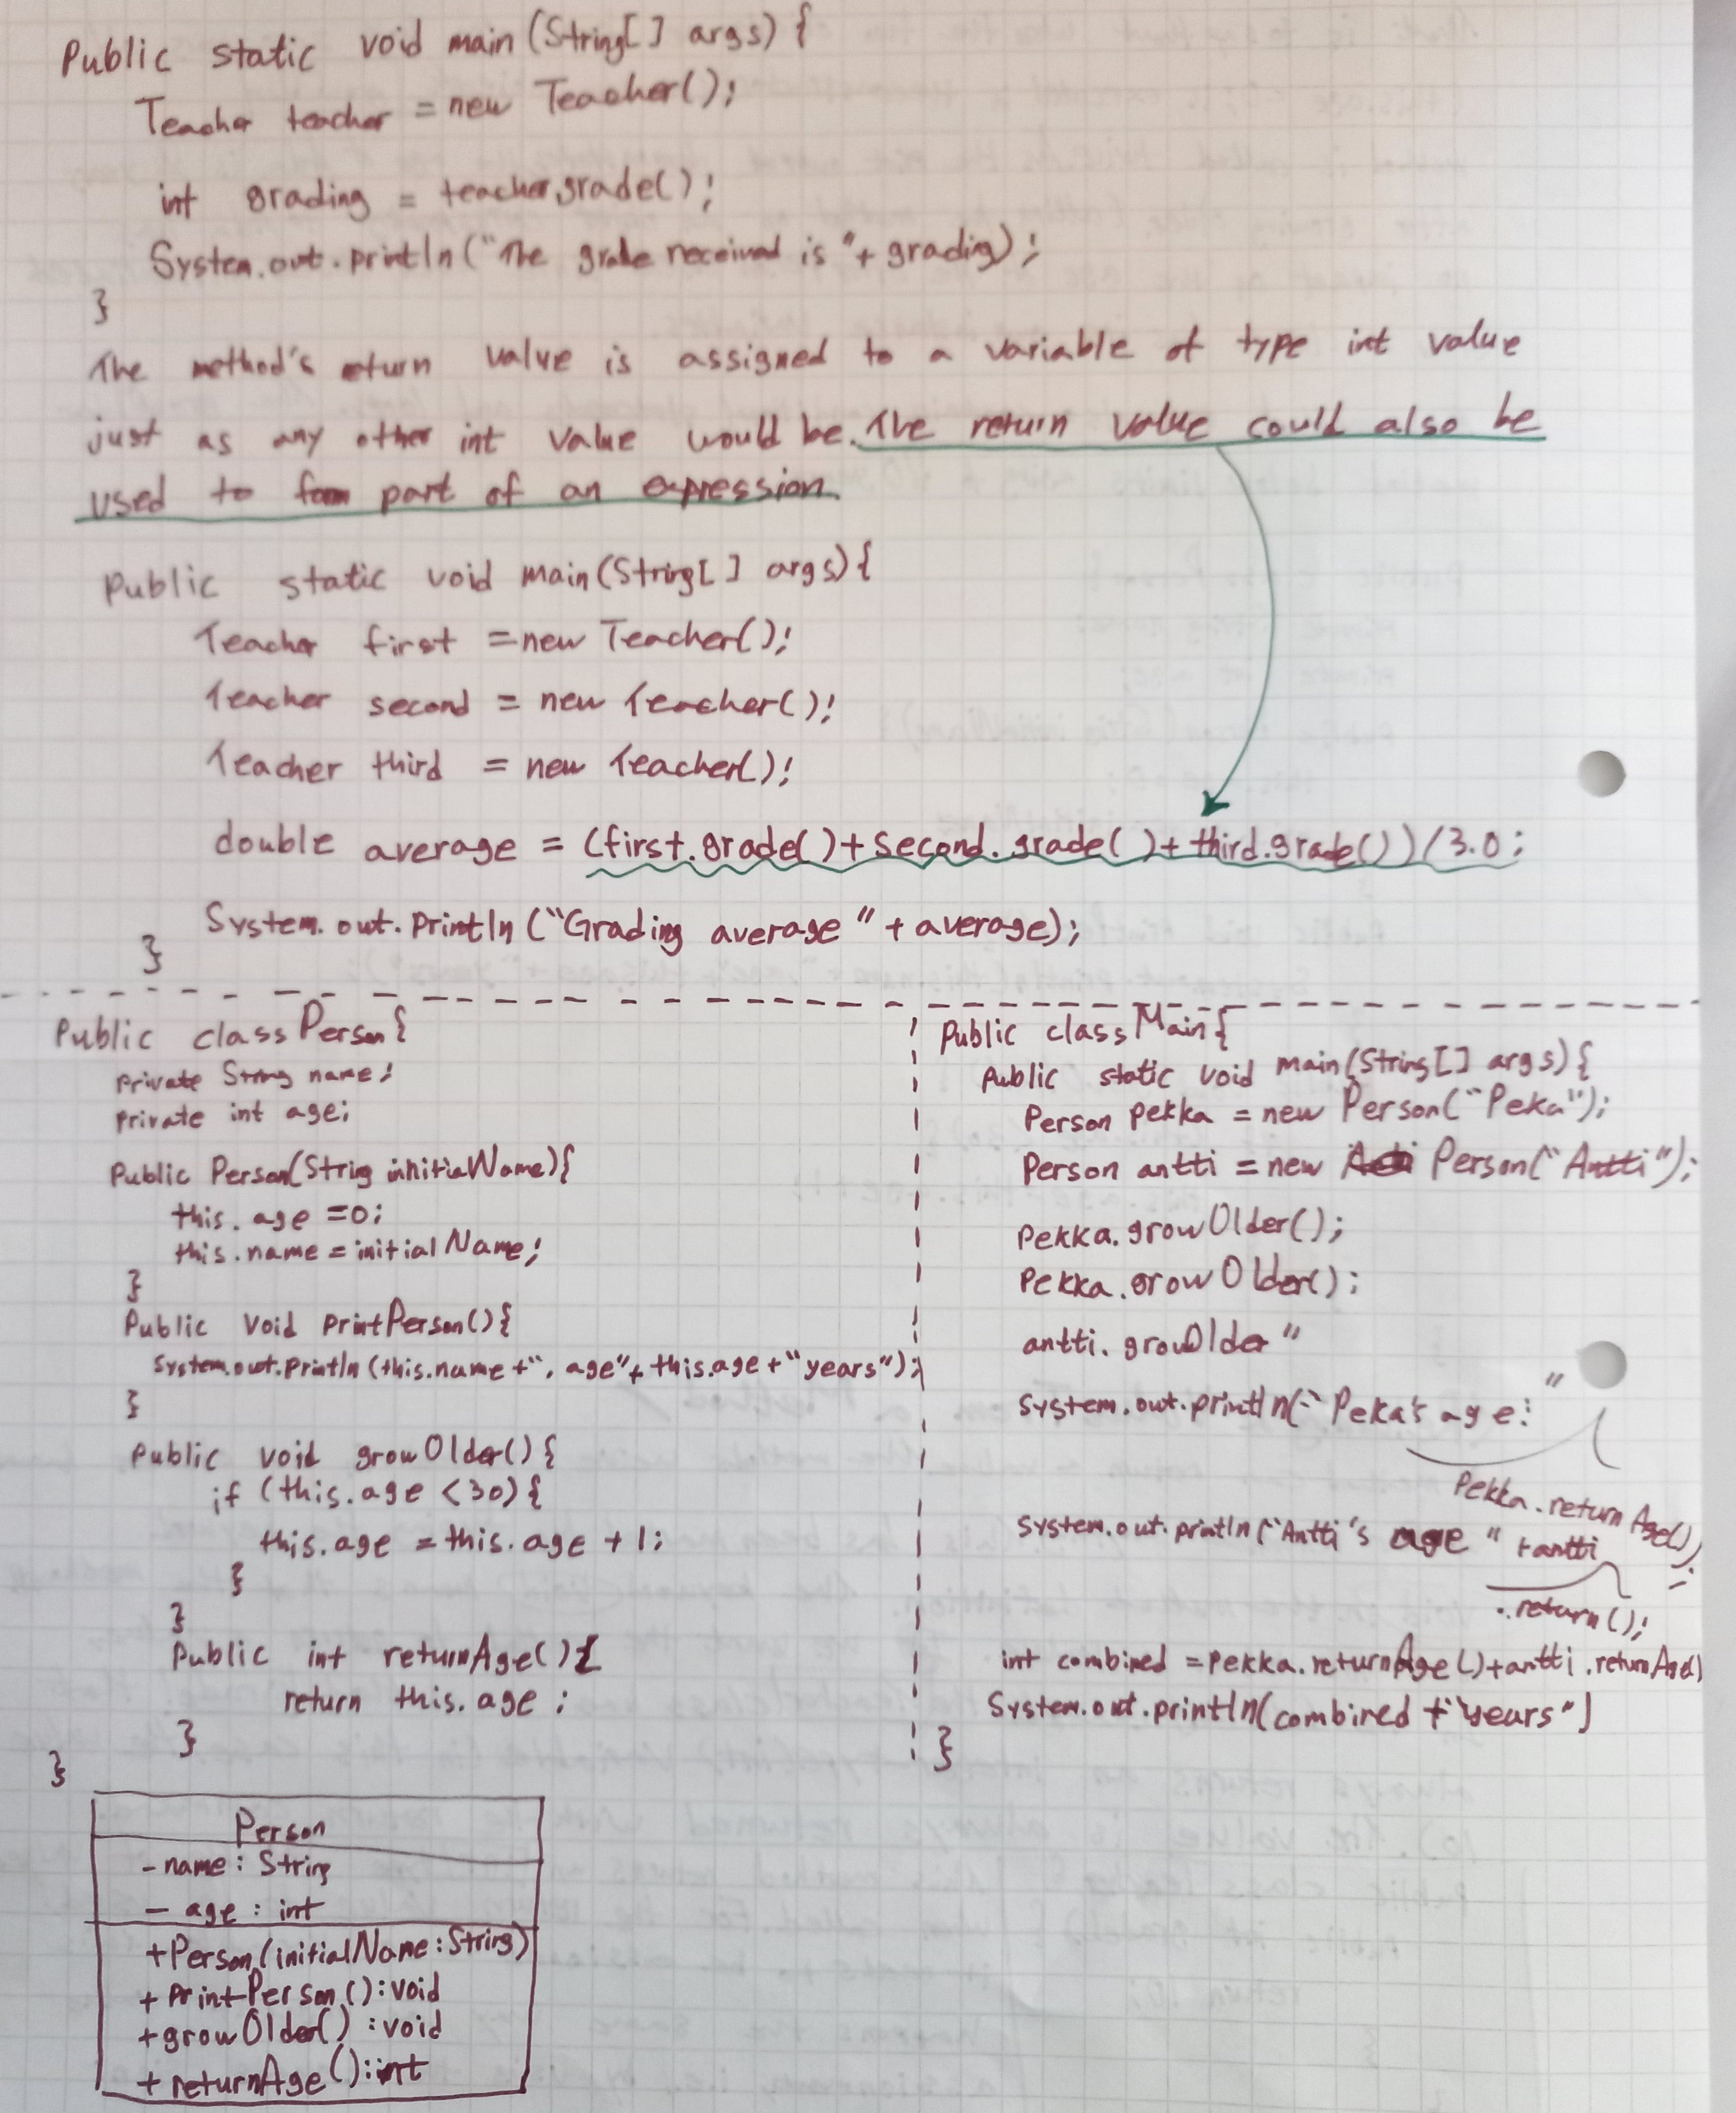 Public static void main (String[] args) {
Teacher teacher = new Teacher();
int grading = teacher.grade();
System.out.println("The grade received is "+ grading);
}
The method's return value is assigned to a variable of type int value
just as any other int value would be. The return value could also be
used to form part of an expression.
public static void main(String[] args){
Teacher first = new Teacher();
Teacher second = new Teacher();
Teacher third = new Teacher();
double average = (first.grade()+second.grade()+third.grade())/3.0;
System.out.println("Grading average " + average);
}
Public class Person{
private String name;
private int age;
Public Person(String initialName){
this.age =0;
this.name = initialName;
}
Public void printPerson(){
System.out.println(this.name+", age"+this.age+"years");
}
Public void growOlder(){
if (this.age <30){
this.age = this.age +1;
}
}
Public int returnAge(){
return this.age;
}
}
Public class Main{
Public static void main(String[] args){
Person pekka = new Person("Peka");
Person antti = new Person("Antti");
Pekka.growOlder();
Pekka.growOlder();
antti.growOlder "
System.out.println("Peka's age: "
Pekka.returnAge());
System.out.println("Antti's age " +antti
.return();
int combined = Pekka.returnAge()+antti.returnAge()
System.out.println(combined +"years")
}
Person
- name: String
- age: int
+Person(initialName:String)
+ PrintPerson():void
+growOlder() :void
+ returnAge():int